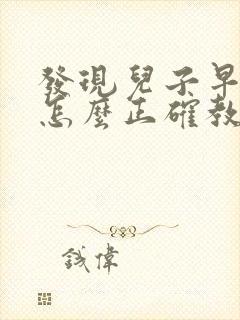 發現兒子早
怎麼正確教
鋮偉